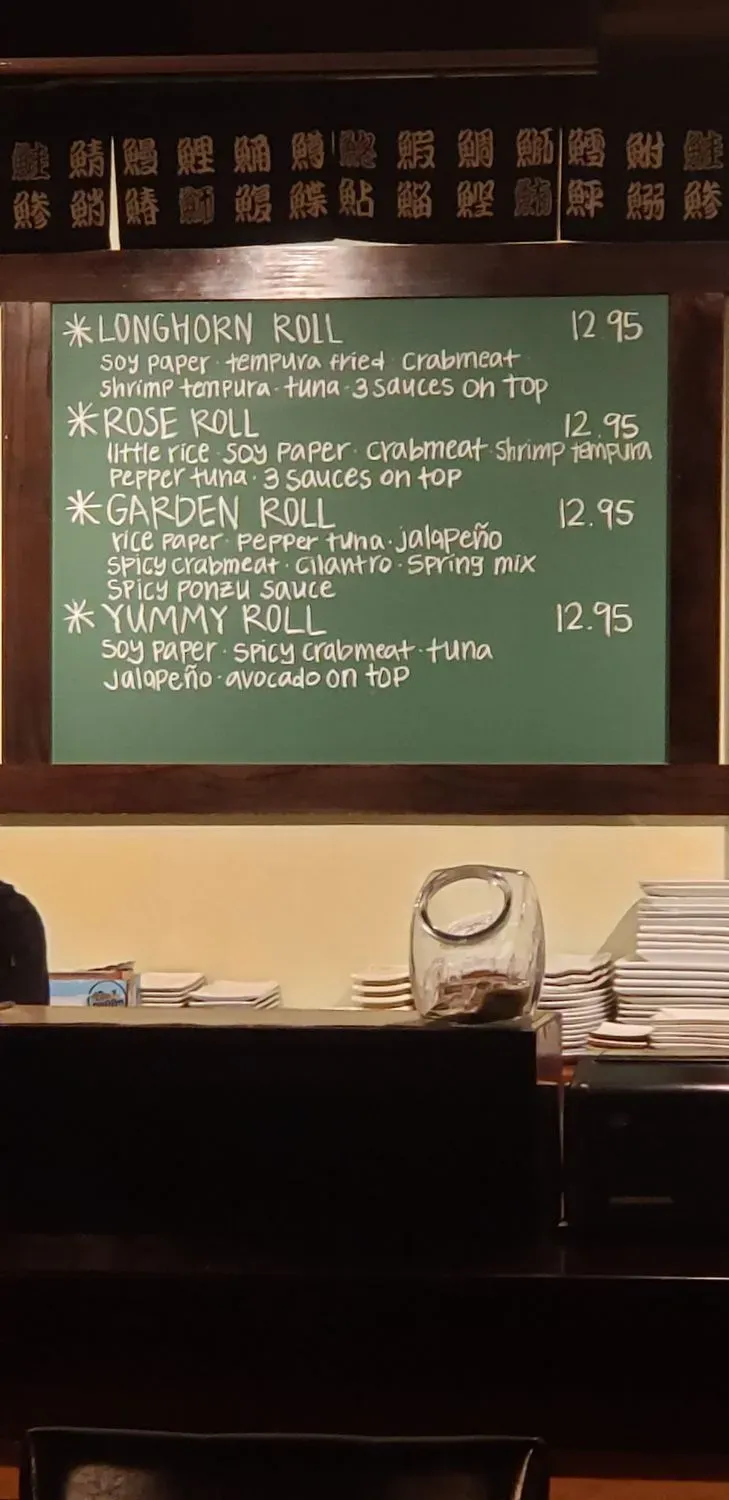 鮭 鯖 鰻 鯉 鱒 鰕 鯛 鰤 鱈 鮒 鮭
鯵 鮹 鰆 鰤 鰒 鰈 鮎 鯔 鰹 鮪 鮃 鰯 鯵
*LONGHORN ROLL 12.95
soy paper · tempura fried crabmeat
shrimp tempura · tuna · 3 sauces on top
*ROSE ROLL 12.95
little rice · soy paper · crabmeat · shrimp tempura
pepper tuna · 3 sauces on top
*GARDEN ROLL 12.95
rice paper · pepper tuna · jalapeño
spicy crabmeat · cilantro · spring mix
spicy ponzu sauce
*YUMMY ROLL 12.95
soy paper · spicy crabmeat · tuna
jalapeño · avocado on top